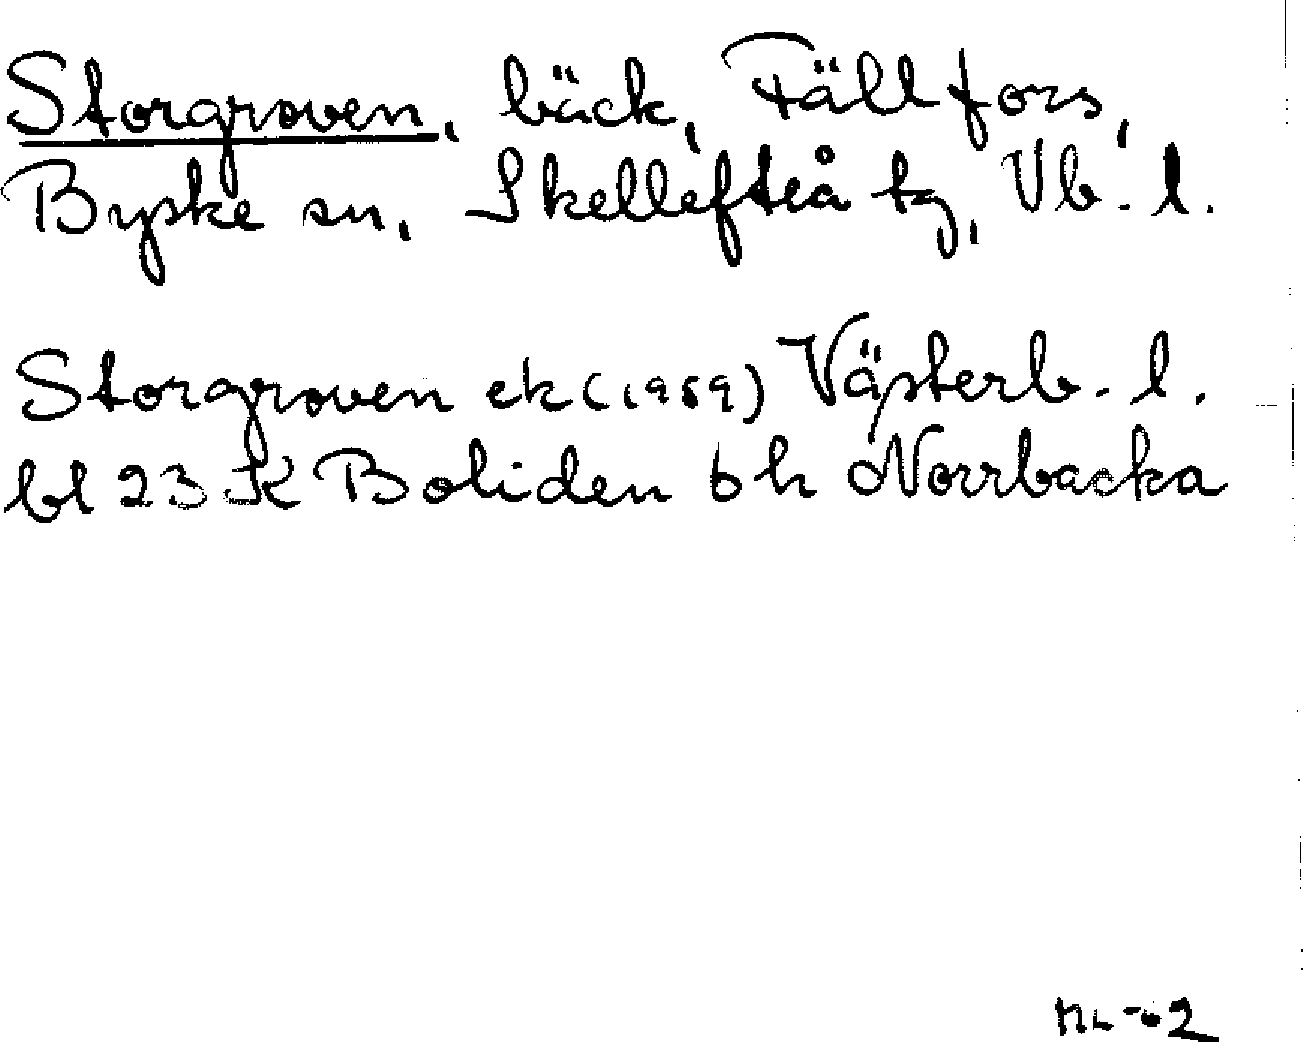 Storgroven, bäck, Fällfors,
Byske sn, Skellefteå tg, Vb. l.
Storgroven ek (1959) Västerb. l.
bl 23 K Boliden 6 h Norrbacka